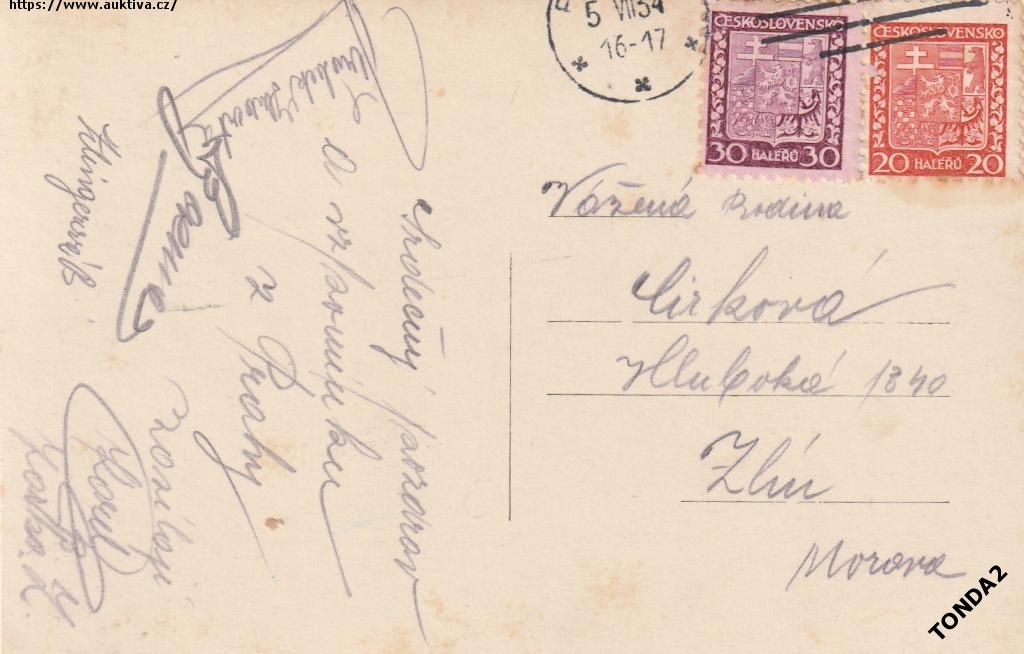 https://www.auktiva.cz/
5 VII 34
16-17
ČESKOSLOVENSKO
30 HALÉŘŮ 30
ČESKOSLOVENSKO
20 HALÉŘŮ 20
Vážená rodina
Cirková
Hluboká 1340
Zlín
Morava
Srdečný pozdrav
a vzpomínku
z Prahy
zasílají
Klingerová B.
TONDA2